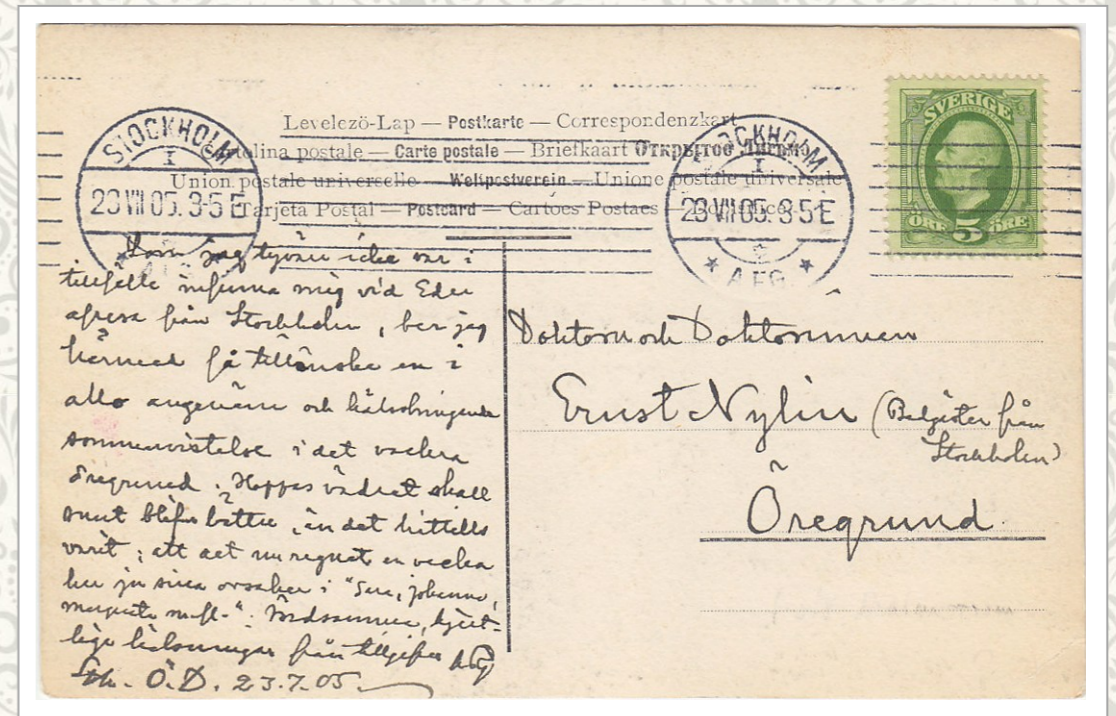 Levelező-Lap — Postkarte — Correspondenzkart
Cartolina postale — Carte postale — Briefkaart Открытое
Union postale universelle — Weltpostverein — Unione postale universale
Tarjeta Postal — Postcard — Cartoes Postaes
STOCKHOLM
1
23 VII 05. 3-5 E
STOCKHOLM
1
23 VII 05. 3 5 E
AFG.
SVERIGE
ÖRE 5 ÖRE
Som jag tyvärr icke var i
tillfälle infinna mig vid Eder
afresa från Stockholm, ber jag
härmed få tillönska en i
allo angenäm och hälsobringande
sommarvistelse i det vackra
Öregrund. Hoppas vädret skall
snart blifva bättre, än det hittills
varit; att det nu regnat en vecka
har ju sina orsaker i "Sara, johanna,
margareta m.fl.". Vördsamma, hjert-
liga hälsningar från tillgifne
Sth. Ö.D. 23.7.05.
Doktorn och Doktorinnan
Ernst Nylin (Badgäster från
Stockholm)
Öregrund.